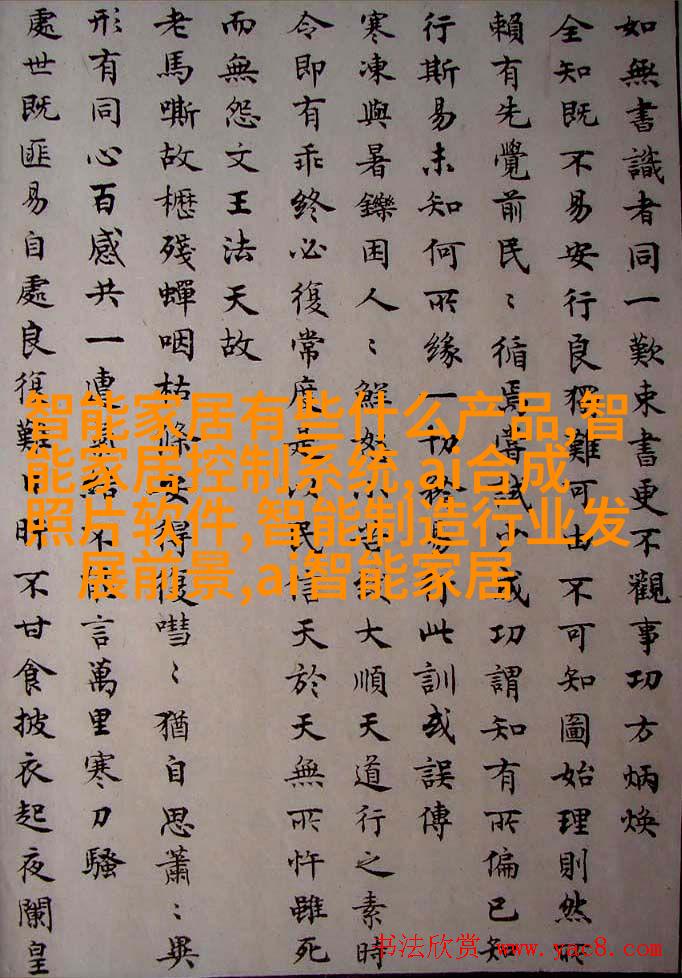 如無書識者同一歎束書更不觀事功方炳煥
全知既不易安行良獨難可由不可知圖始理則然所
賴有先覺前民〻循焉嘗試少成功謂知有所偏已知
行斯易未知何所緣一切易此訓或誤傳
寒凍與暑鑠困人〻鮮怒大順天道行之素時
令即有乖終必復常度是以民信天於天無所忤雖死
而無怨文王法天故
老馬嘶故櫪殘蟬咽枯條安得復嘒〻猶自思蕭〻異
形有同心百感共一不言萬里寒刀騷
處世既匪易自處良復難日旰不甘食披衣起夜闌皇
智能家居有些什么产品,智
能家居控制系统,ai合成
照片软件,智能制造行业发
展前景,ai智能家居
书法欣赏 www.yac8.com